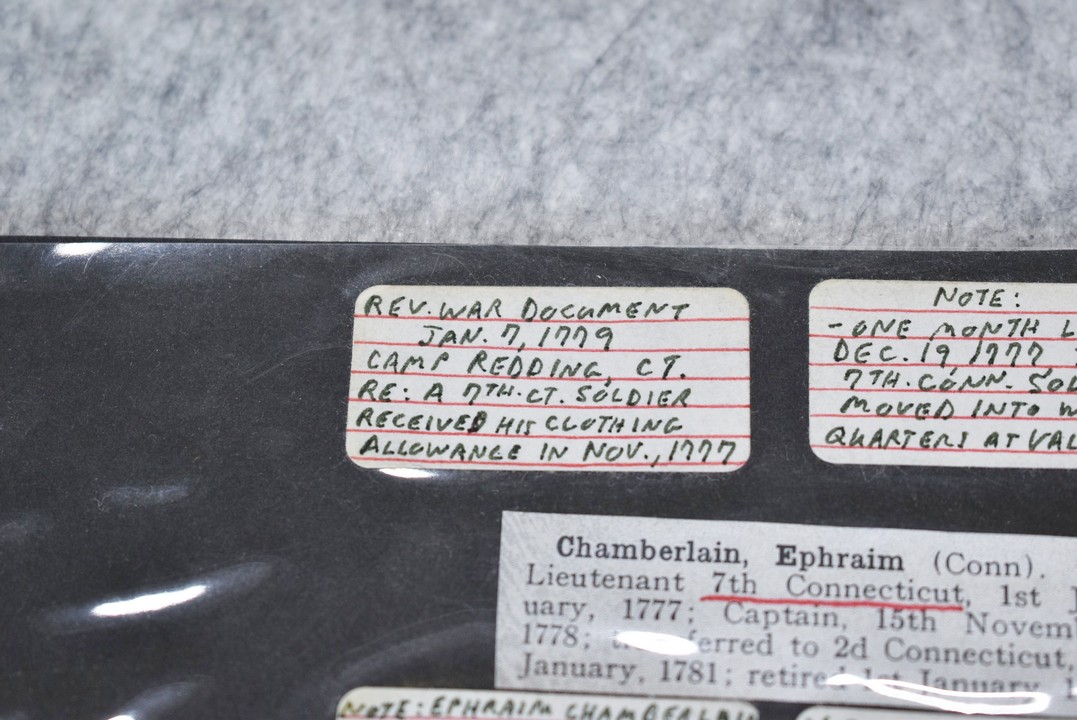 REV. WAR DOCUMENT
JAN. 7, 1779
CAMP REDDING, CT.
RE: A 7TH. CT. SOLDIER
RECEIVED HIS CLOTHING
ALLOWANCE IN NOV., 1777
NOTE:
- ONE MONTH L
DEC. 19 1777
7TH. CONN. SOL
MOVED INTO W
QUARTERS AT VAL
Chamberlain, Ephraim (Conn).
Lieutenant 7th Connecticut, 1st J
uary, 1777; Captain, 15th Novem
1778; erred to 2d Connecticut,
January, 1781; retired 1st January, 1
NOTE: EPHRAIM CHAMBERLAIN